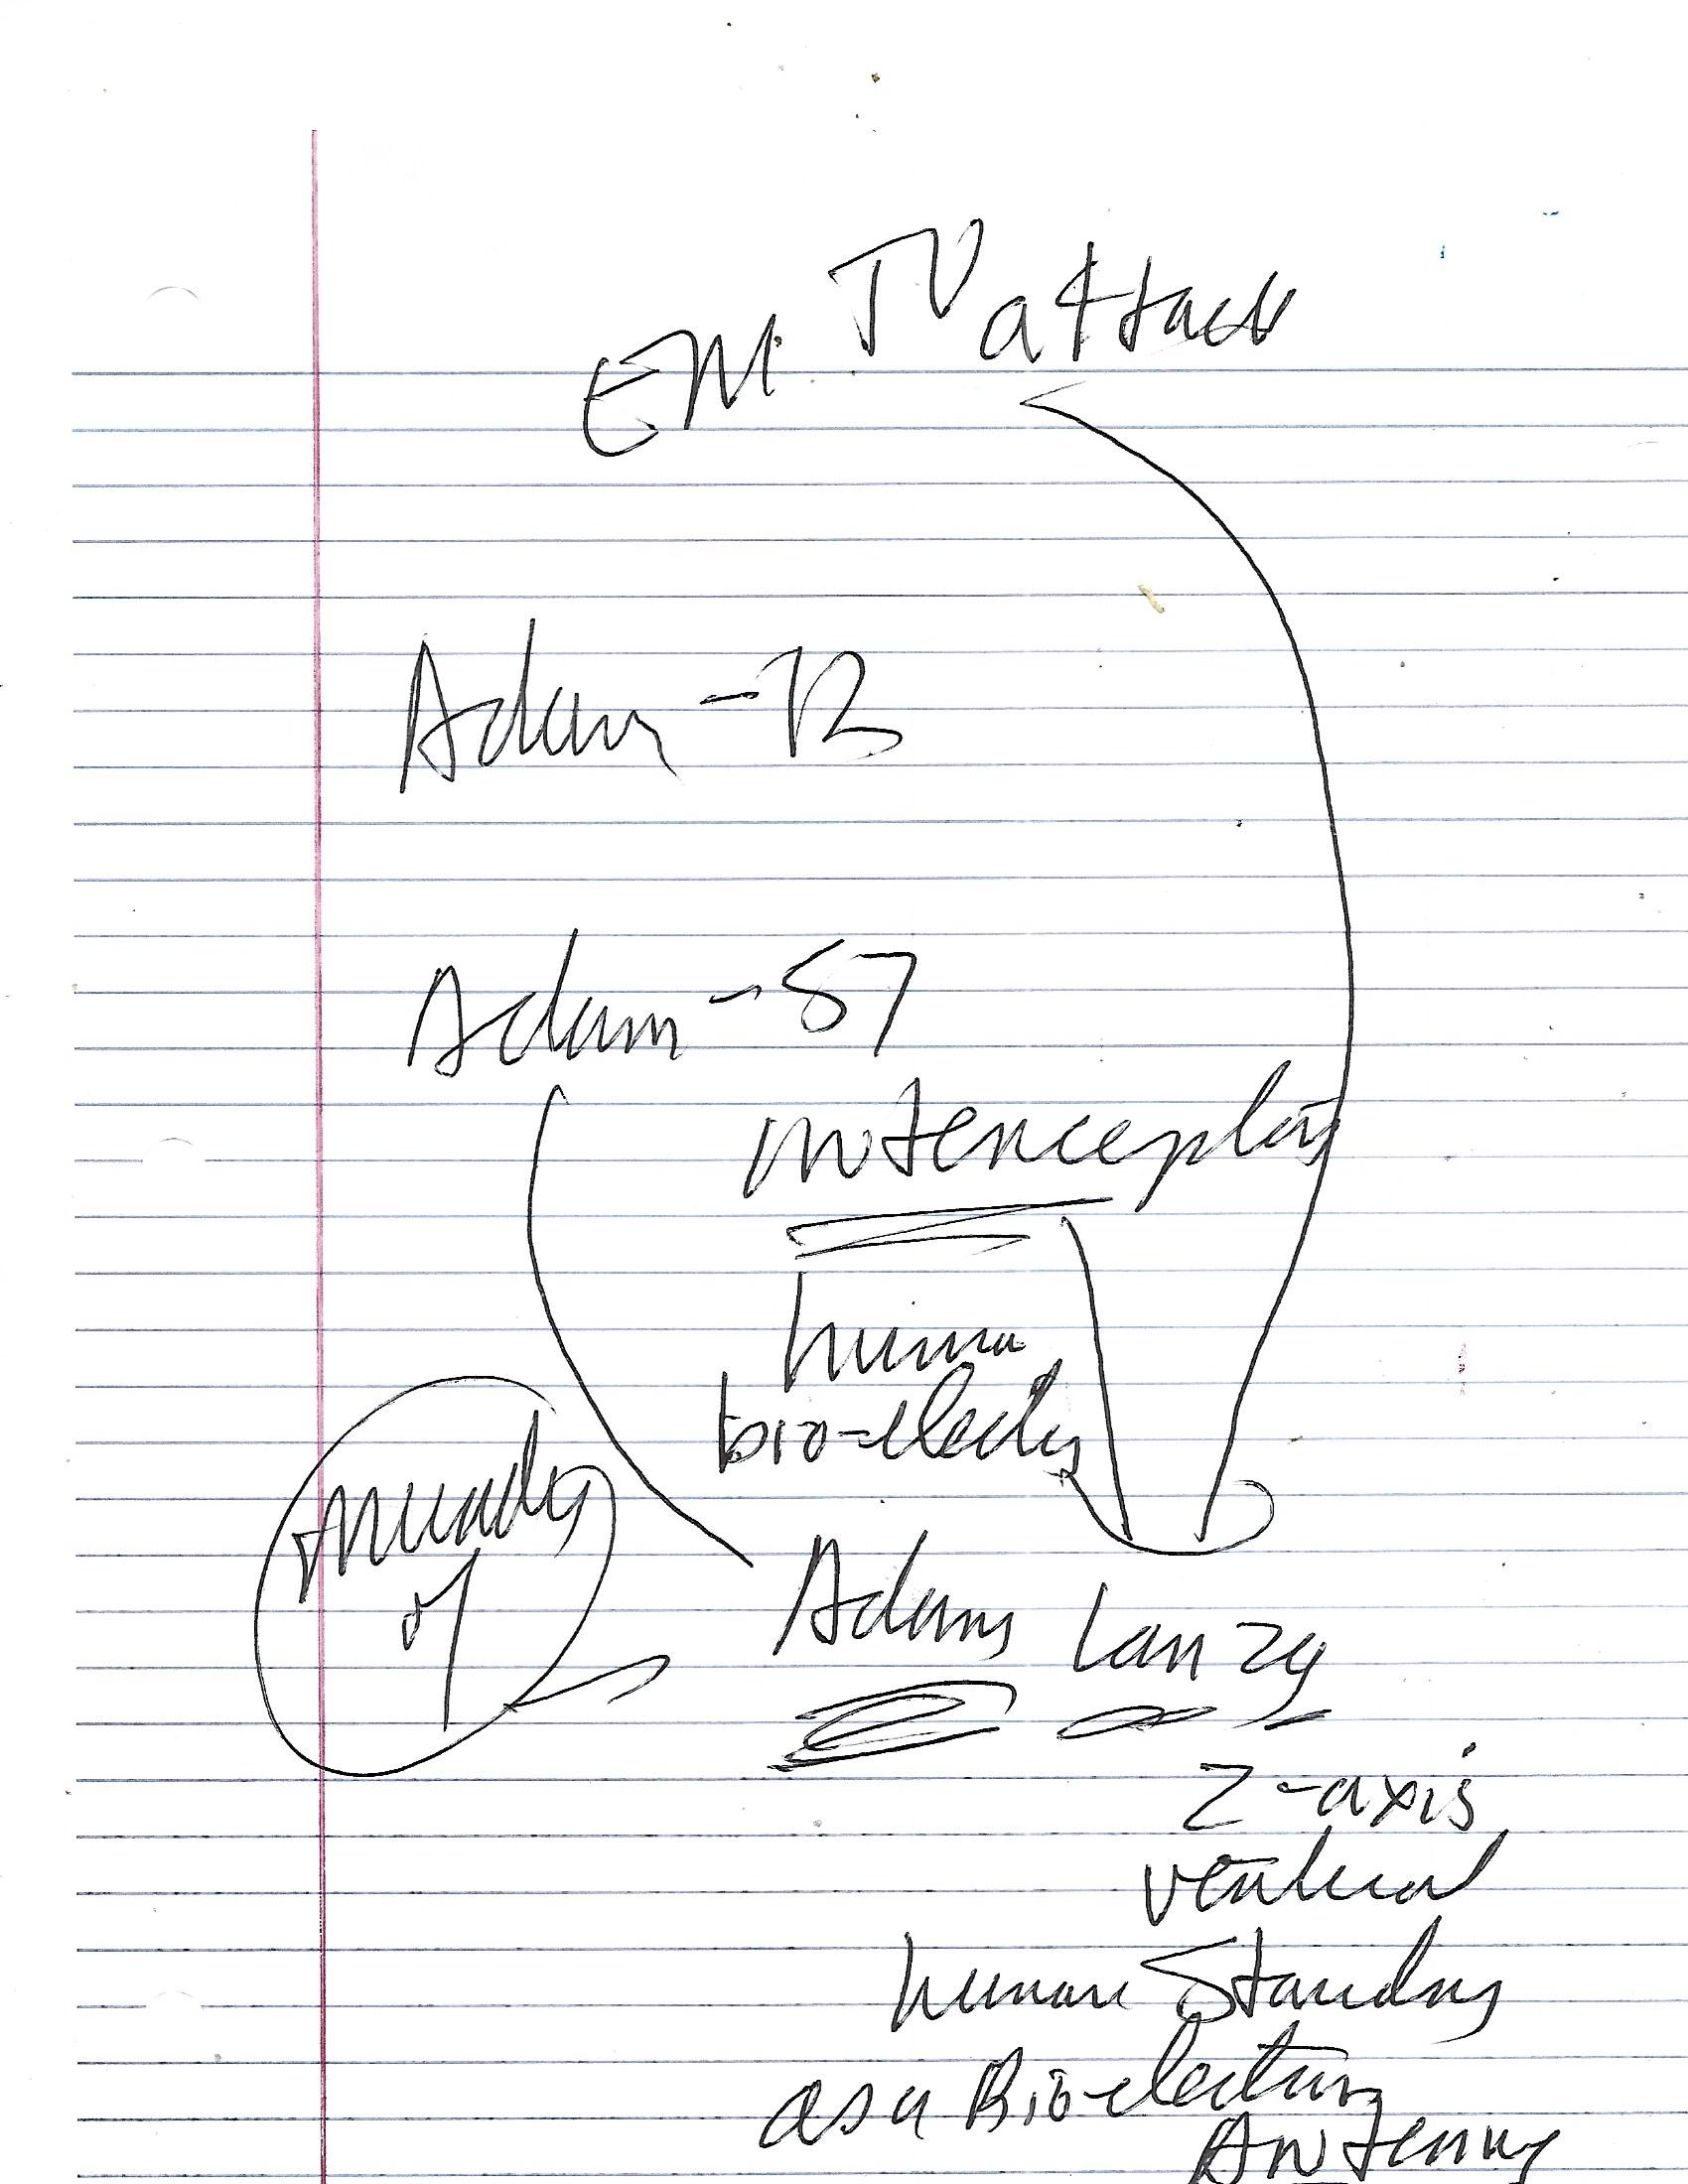 EM TV attack
Adam-12
Adam-57
human
bio-electric
of
Adam Lanza
Z-axis
vertical
human Standing
as a Bio-electric
Antenna